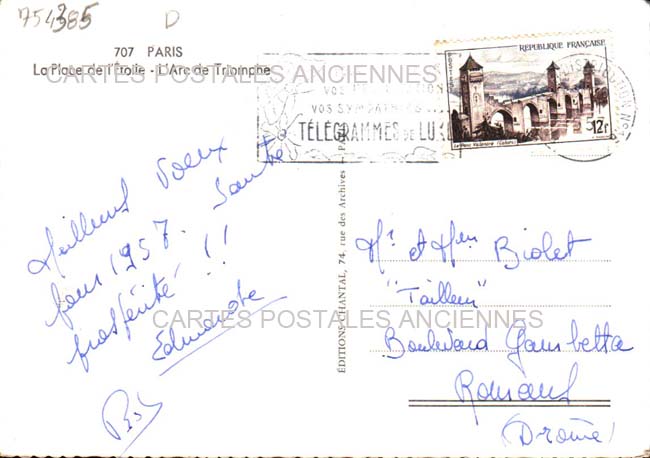 754385
D
707 PARIS
La Place de l'Étoile - L'Arc de Triomphe
CARTES POSTALES ANCIENNES
VOS
VOS SYMPATHIES
TÉLÉGRAMMES DE LUXE
REPUBLIQUE FRANÇAISE
12f
Le Pont Valentré (Cahors)
Meilleurs Voeux
pour 1957. Santé
prospérité !!
Edmonde
ÉDITIONS CHANTAL, 74, rue des Archives - PARIS
Mr et Mme Biolet
"Tailleur"
CARTES POSTALES ANCIENNES
Boulevard Gambetta
Romans
(Drôme)